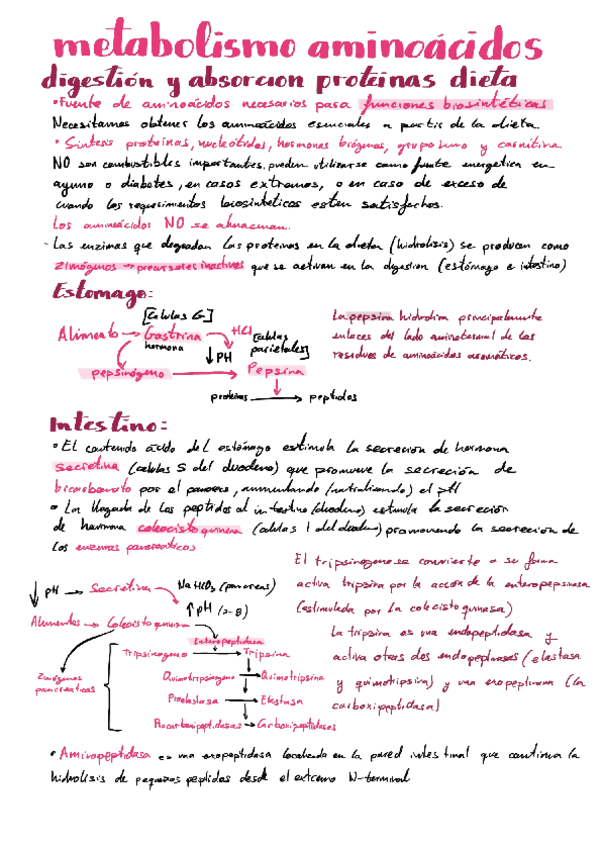 metabolismo aminoácidos
digestión y absorcion proteinas dieta
•Fuente de aminoácidos necesarios para funciones biosintéticas
Necesitamos obtener los aminoácidos esenciales a partir de la dieta
• Sintesis proteinas, nucleótidos, hormonas biógenas, grupo hemo y carnitina
NO son combustibles importantes, pueden utilizarse como fuente energetica en
ayuno o diabetes, en casos extremos, o en caso de exceso de
cuando los requerimientos biosinteticos esten satisfechos.
Los aminoácidos NO se almacenan.
- Las enzimas que degradan las proteinas en la dieta (hidrolisis) se producen como
zimógenos → precursores inactivos que se activan en la digestion (estómago e intestino)
Estomago:
[Celulas G]
Alimento → Gastrina → HCl [celulas parietales]
hormona
↓ PH
pepsinógeno → Pepsina
proteinas → peptidos
La pepsina hidroliza principalmente
enlaces del lado aminoterminal de los
residuos de aminoácidos aromáticos.
Intestino:
• El contenido ácido del estómago estimula la secrecion de hormona
secretina (celulas S del duodeno) que promueve la secreción de
bicarbonato por el pancreas, aumentando (neutralizando) el pH
• La llegada de los peptidos al intestino (duodeno) estimula la secreción
de hormona colecistoquinina (celulas I del duodeno) promoviendo la secreción de
los enzimas pancreaticos
El tripsinogeno se convierte a su forma
activa tripsina por la acción de la enteropepsinasa
(estimulada por la colecistoquinasa)
La tripsina es una endopeptidasa y
activa otras dos endopeptidasas (elastasa
y quimotripsina) y una exopeptidasa (la
carboxipeptidasa)
↓ pH → Secretina → NaHCO3 (pancreas)
↑ pH (7-8)
Alimentos → Colecistoquinina
Enteropeptidasa
Tripsinogeno → Tripsina
Zimógenos
pancreaticos
Quimotripsinogeno → Quimotripsina
Proelastasa → Elastasa
Procarboxipeptidasas → Carboxipeptidasas
• Aminopeptidasa es una exopeptidasa localizada en la pared intestinal que continua la
hidrolisis de pequeños peptidos desde el extremo N-terminal